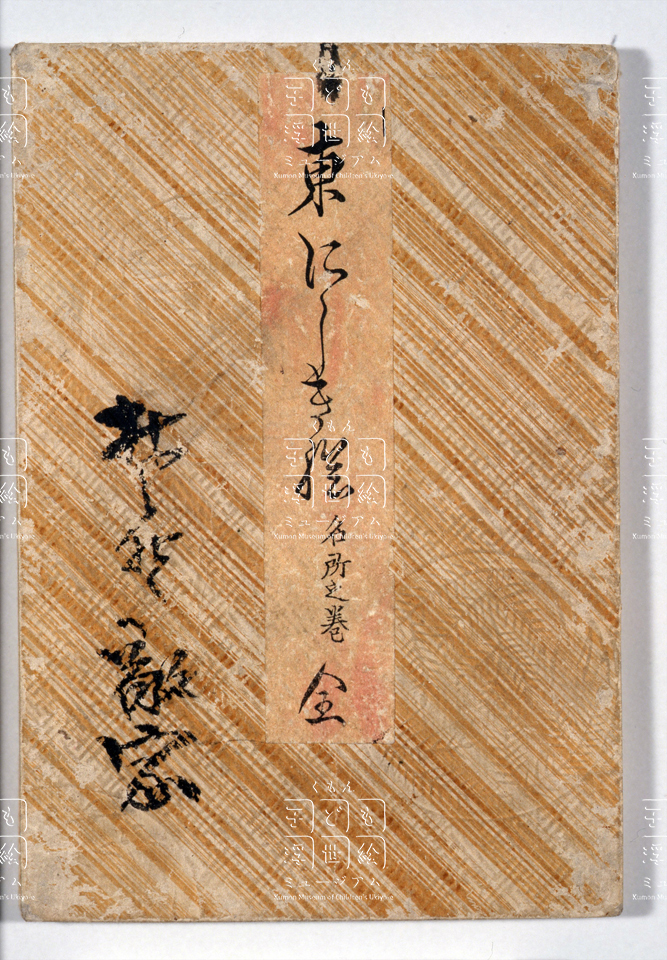 東にしき絵 名所之巻 全
くもん
子ども
浮世絵
ミュージアム
Kumon Museum of Children's Ukiyo-e